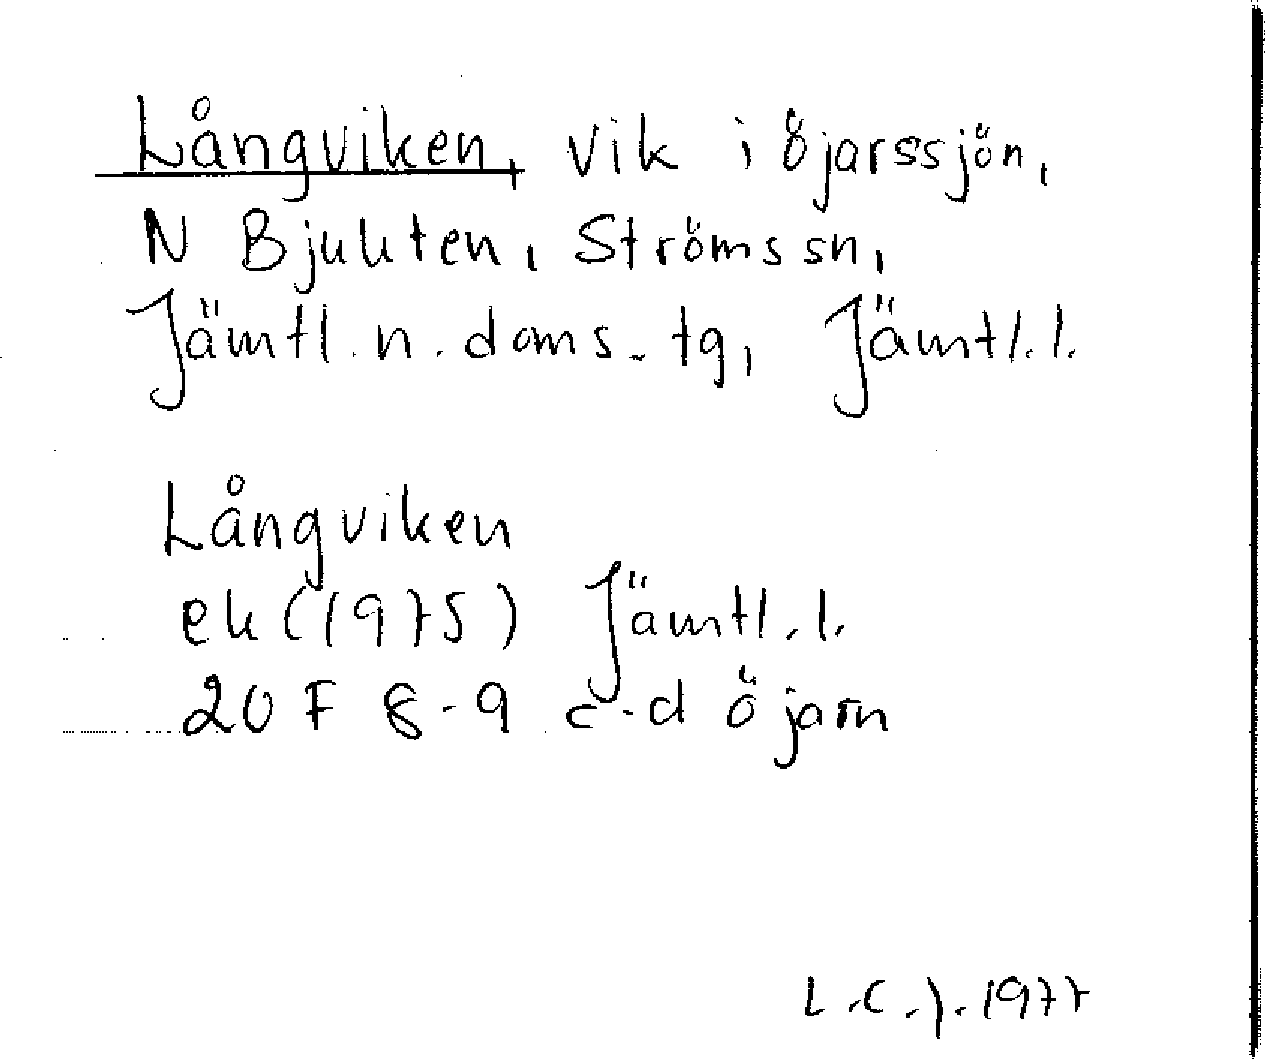 Långviken, vik i Öjarssjön,
N Bjukten, Ströms sn,
Jämtl. n. doms. tg, Jämtl. l.
Långviken
ek (1975) Jämtl. l.
20 F 8-9 c-d Öjarn
L.C.J. 1977